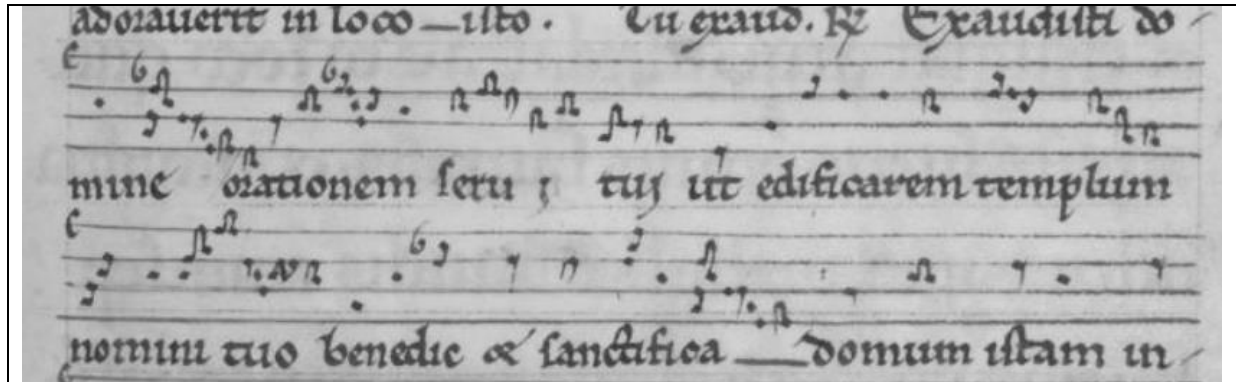 adorauerit in loco—isto. Tu exaud. R̸ Exaudisti do-
mine orationem serui tui ut edificarem templum
nomini tuo benedic & sanctifica—domum istam in-